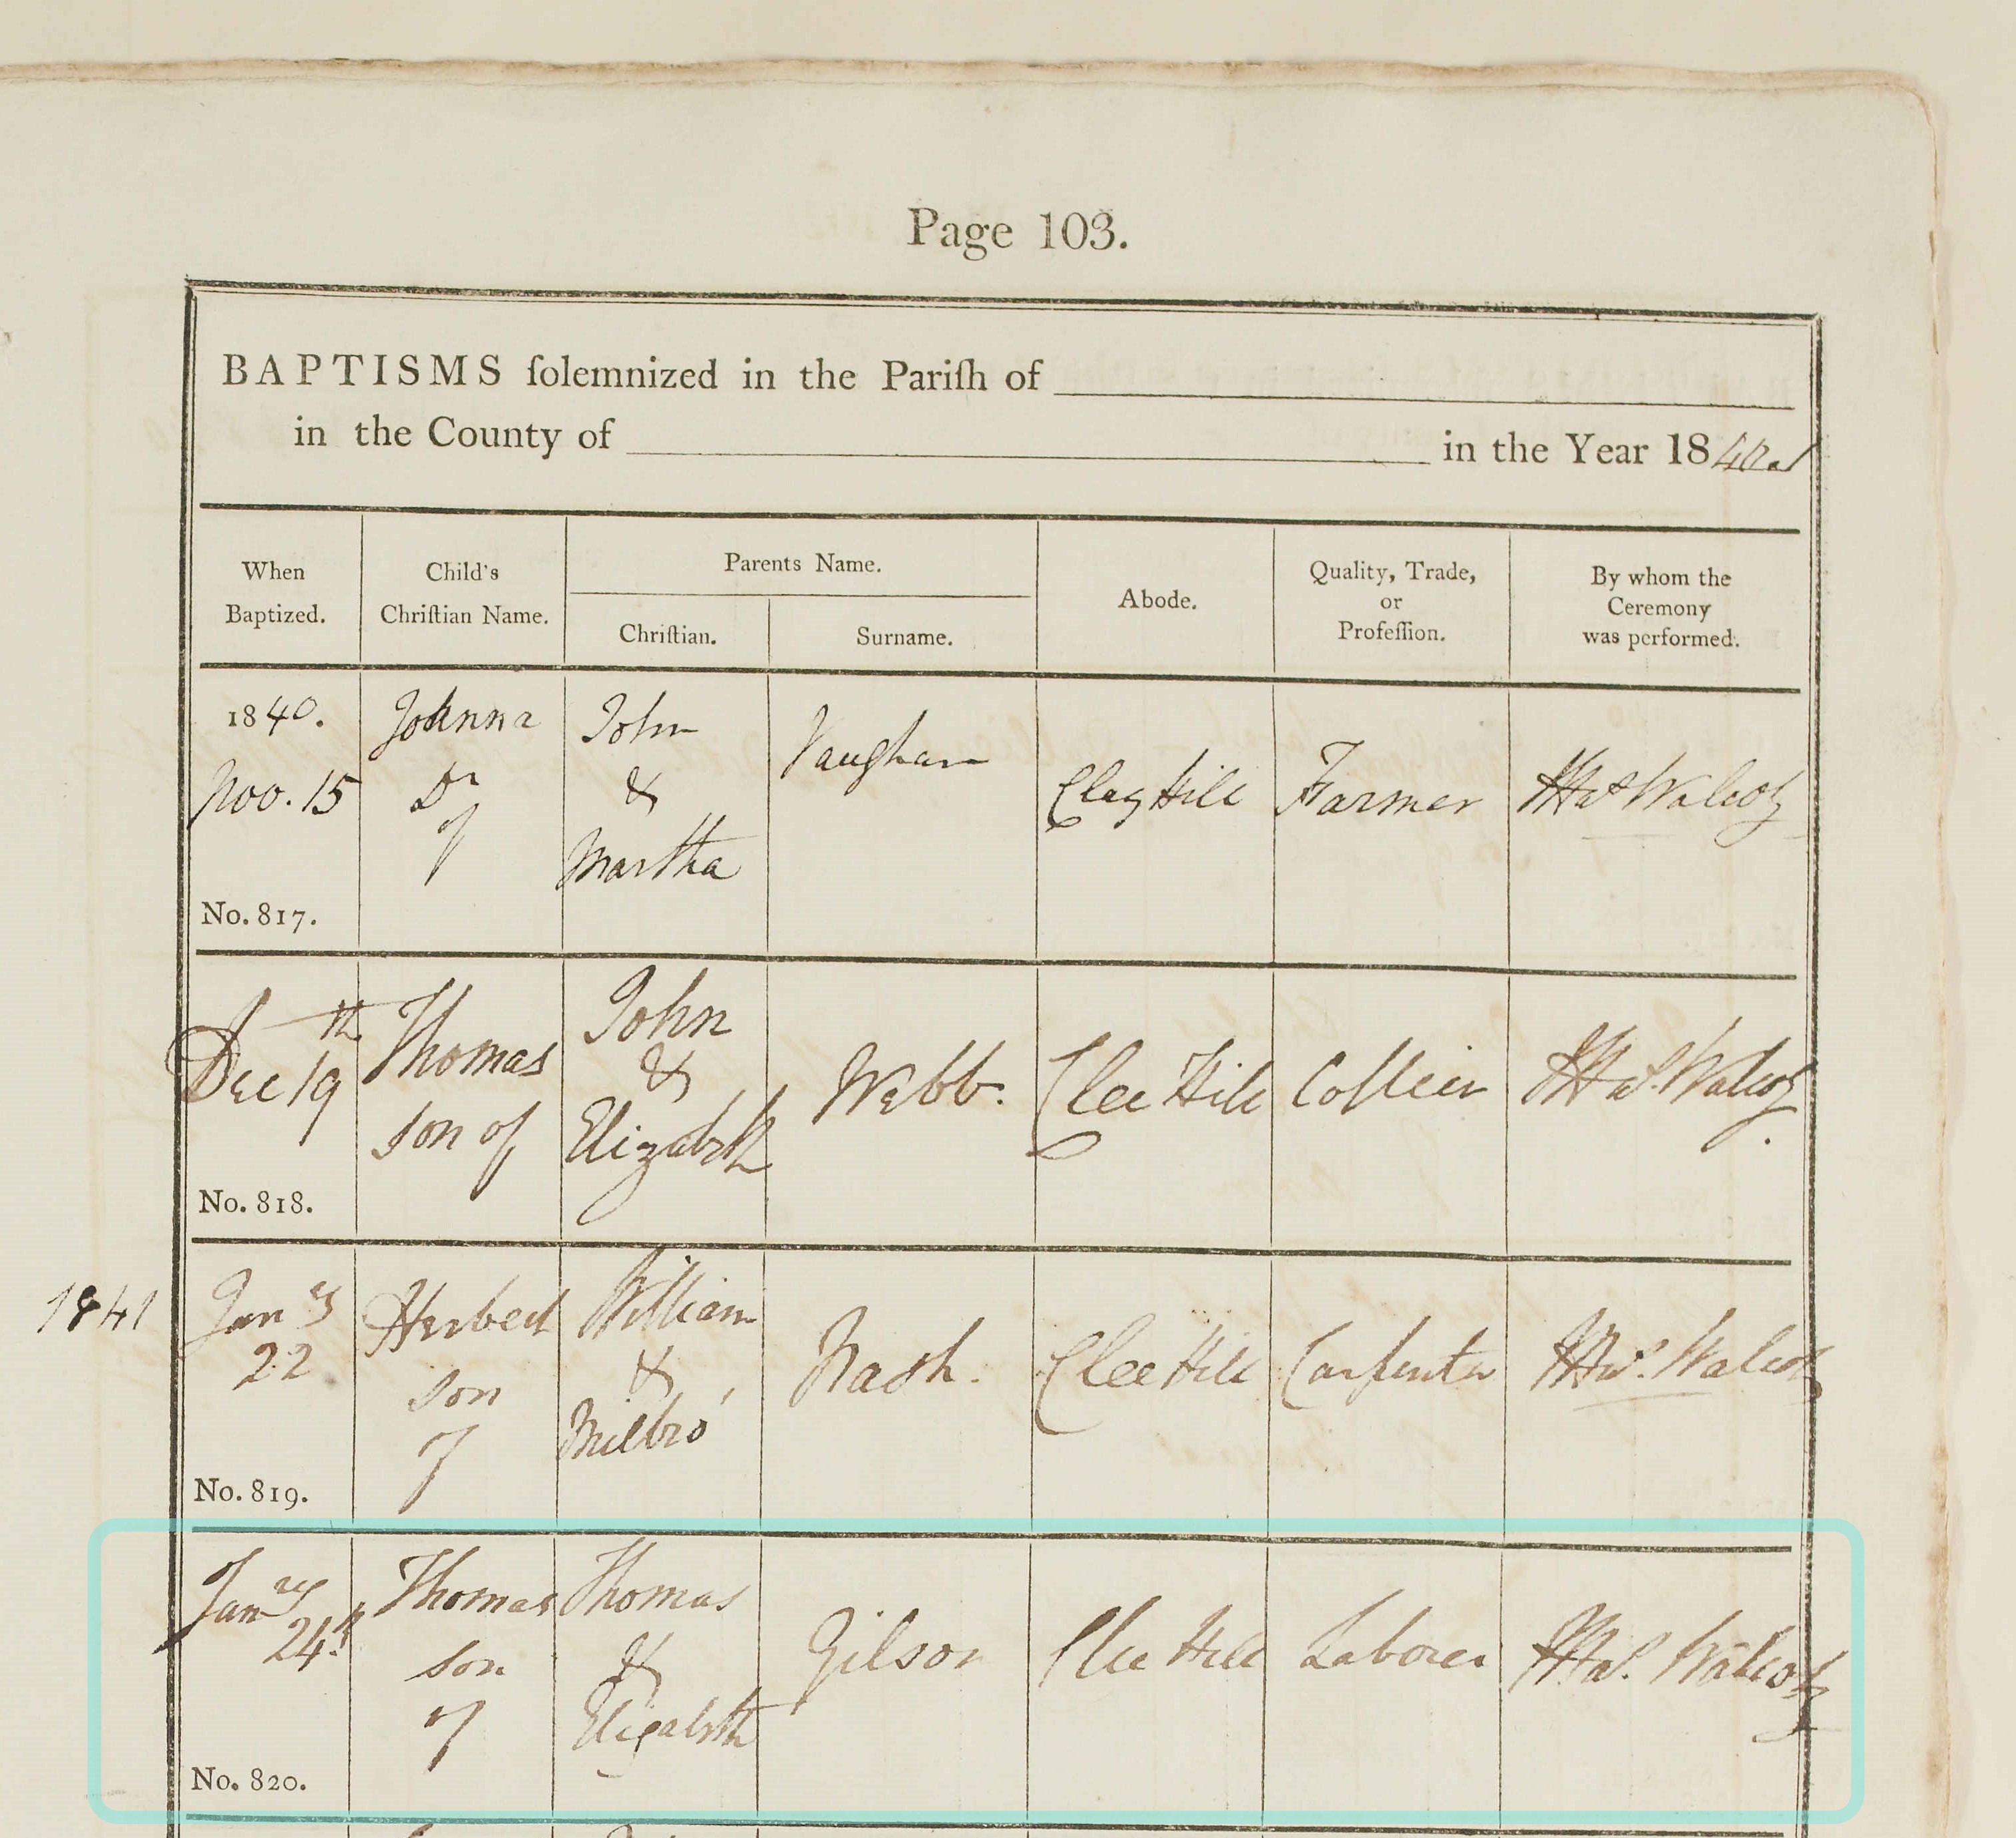 Page 103.
BAPTISMS ſolemnized in the Pariſh of
in the County of in the Year 1840
When Baptized.
Child's Chriſtian Name.
Parents Name.
Chriſtian.
Surname.
Abode.
Quality, Trade, or Profeſſion.
By whom the Ceremony was performed.
1840.
Nov. 15
No. 817.
Johnna
Dr
of
John
&
Martha
Vaughan
Clay Hill
Farmer
Walcot
Dec 19th
No. 818.
Thomas
son of
John
&
Elizabeth
Webb.
Clee Hill
Collier
Walcot
1841
Jany
22
No. 819.
Herbert
son
of
William
&
Milbro'
Nash.
Clee Hill
Carpenter
Walcot
Janry
24th
No. 820.
Thomas
son
of
Thomas
&
Elizabeth
Gilson
Clee Hill
Laborer
Walcot